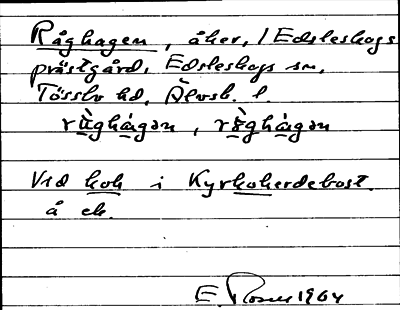 Råghagen, åker, / Edsleskogs
prästgård, Edsleskogs sn,
Tössbo hd, Älvsb. l.
rùghágən, ròghágən
Vid hoh i Kyrkoherdebost.
å ek.
E. Rosus 1964